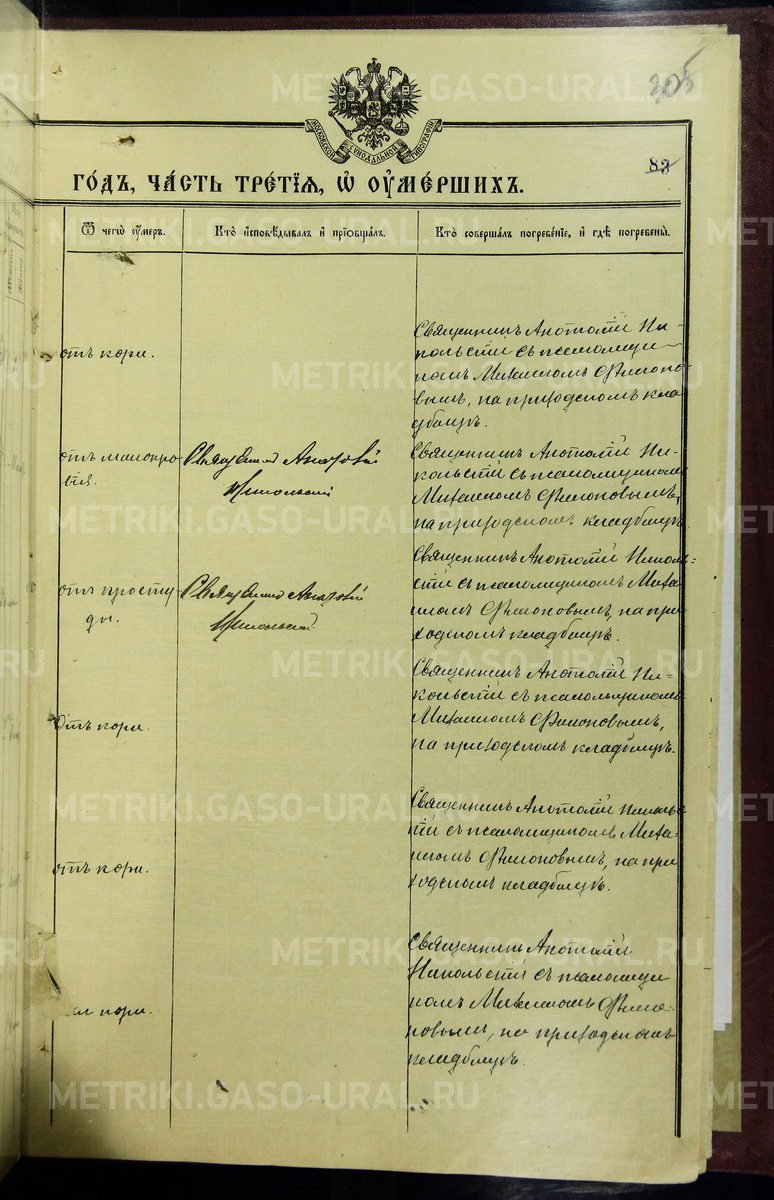 METRIKI.GASO-URAL.RU
305
МОСКОВСКОЙ СѴНОДАЛЬНОЙ ТИПОГРАФІИ
83
ГО́ДЪ, ЧА́СТЬ ТРЕ́ТІѦ, Ѡ҆ ОУ҆МЕ́РШИХЪ.
Ѿ чегѡ̀ ᲂу҆́меръ.
Кто̀ и҆сповѣ́дывалъ и҆ прїѡбща́лъ.
Кто̀ соверша́лъ погребе́нїе, и҆ гдѣ̀ погребены̀.
отъ кори.
Священникъ Анатолій Ни-
кольскій съ псаломщи-
комъ Михаиломъ Филоно-
вымъ, на приходскомъ кла-
дбищѣ.
отъ малокро
вія.
Священник Анатолій
Никольский
Священникъ Анатолій Ни-
кольскій съ псаломщикомъ
Михаиломъ Филоновымъ,
на приходскомъ кладбищѣ.
отъ просту-
ды.
Священник Анатолій
Никольский
Священникъ Анатолій Николь=
скій съ псаломщикомъ Миха
иломъ Филоновымъ, на при-
ходскомъ кладбищѣ.
Отъ кори.
Священникъ Анатолій Ни-
кольскій съ псаломщикомъ
Михаиломъ Филоновымъ,
на приходскомъ кладбищѣ.
отъ кори.
Священникъ Анатолій Николь
скій съ псаломщикомъ Миха-
иломъ Филоновымъ, на при
ходскомъ кладбищѣ.
кори.
Священникъ Анатолій
Никольскій съ псаломщи
комъ Михаиломъ Фило-
новымъ, на приходскомъ
кладбищѣ.